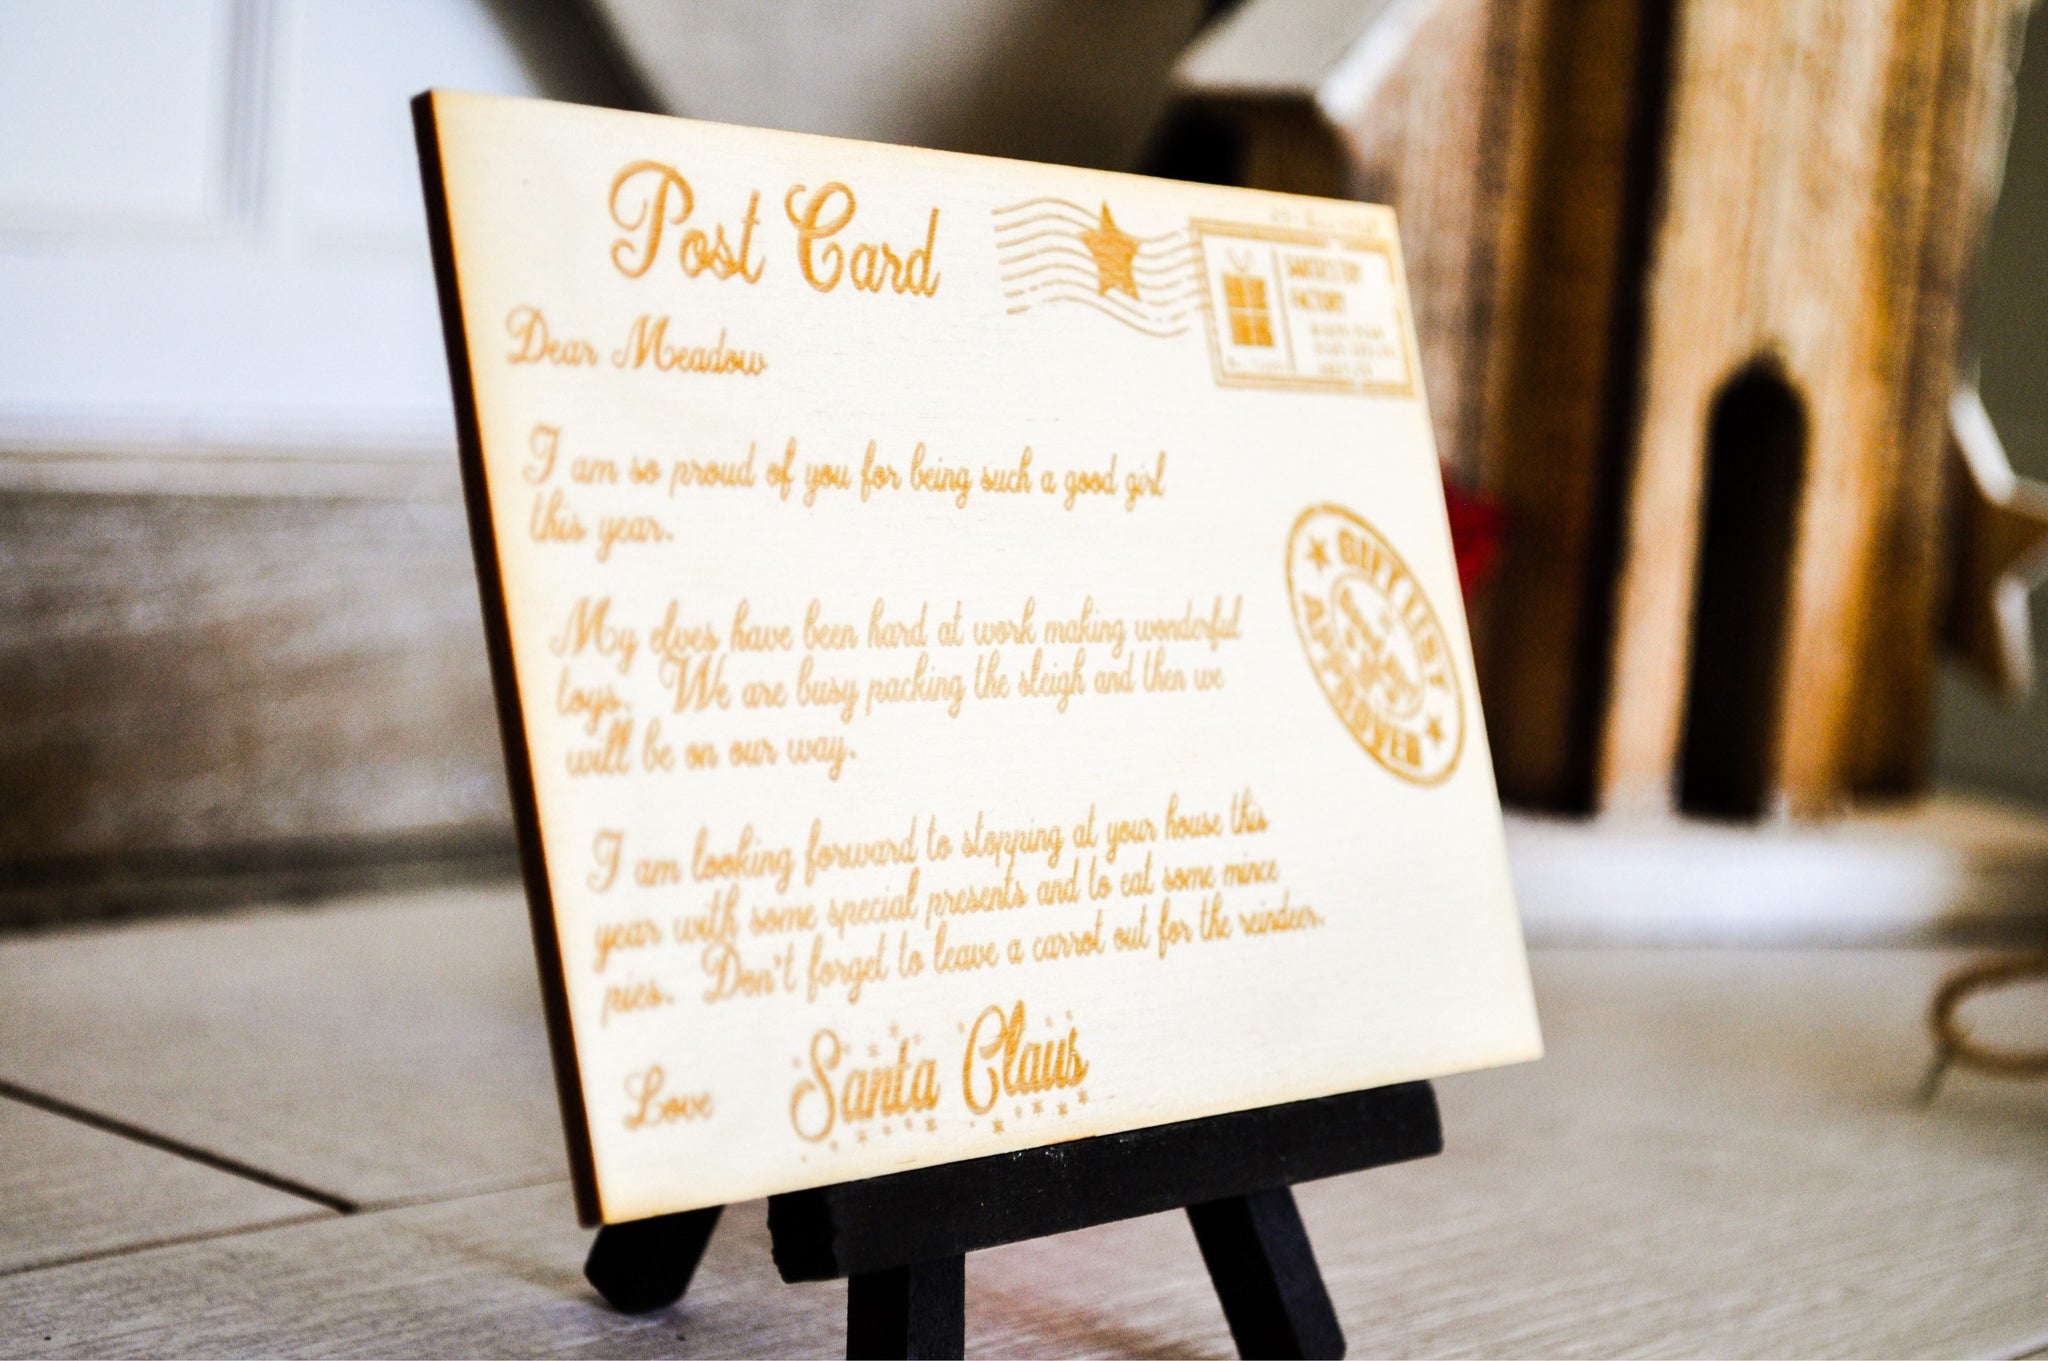 Post Card
Dear Meadow
I am so proud of you for being such a good girl
this year.
My elves have been hard at work making wonderful
toys. We are busy packing the sleigh and then we
will be on our way.
I am looking forward to stopping at your house this
year with some special presents and to eat some mince
pies. Don't forget to leave a carrot out for the reindeer.
Love Santa Claus
FACTORY
GIFT LIST
APPROVED